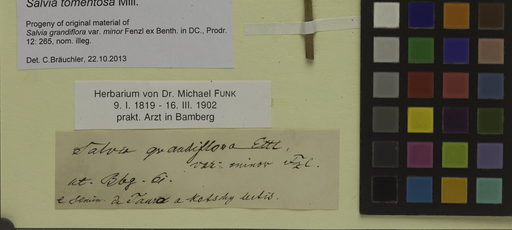 Salvia tomentosa Mill.
Progeny of original material of
Salvia grandiflora var. minor Fenzl ex Benth. in DC., Prodr.
12: 265, nom. illeg.
Det. C.Bräuchler, 22.10.2013
Herbarium von Dr. Michael FUNK
9. I. 1819 - 16. III. 1902
prakt. Arzt in Bamberg
Salvia grandiflora Ettl.
var. minor Fzl.
at. Bbg.
de Tauro a Kotschy lectis.